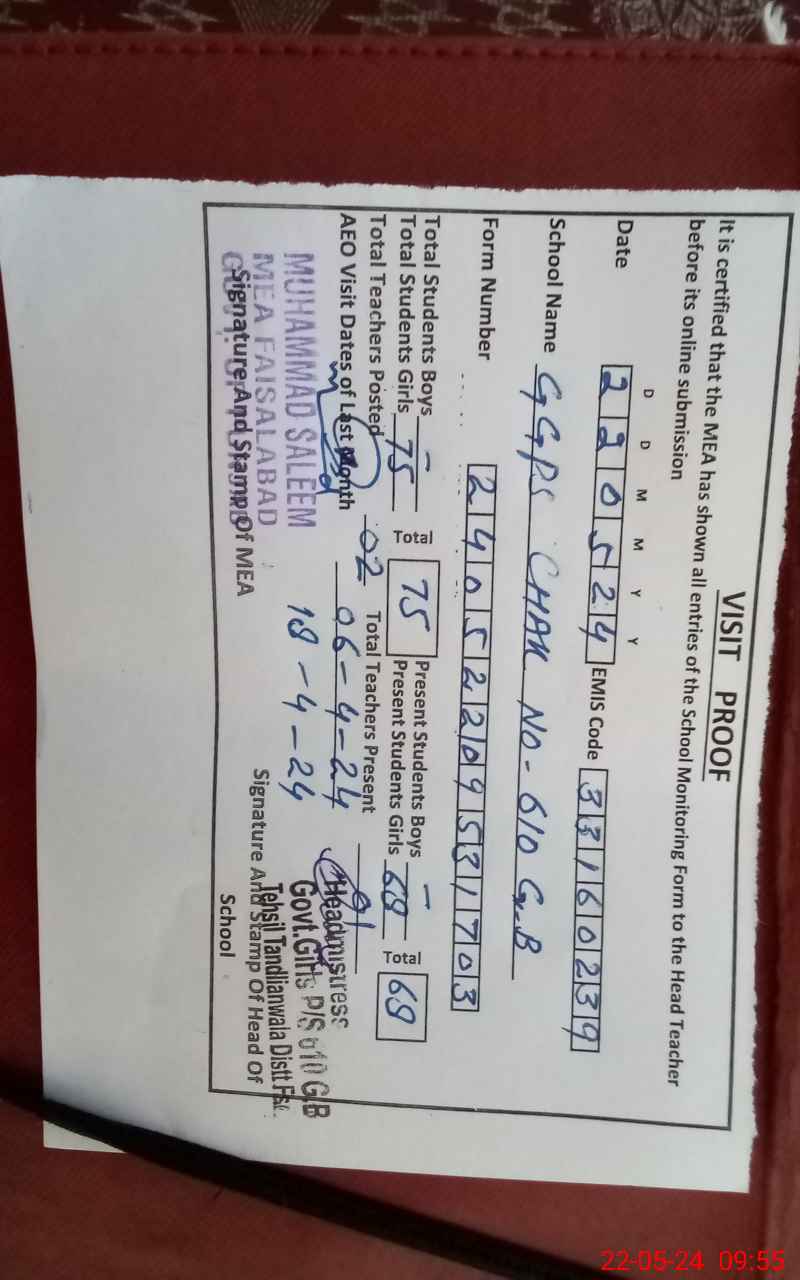 VISIT PROOF
It is certified that the MEA has shown all entries of the School Monitoring Form to the Head Teacher
before its online submission
D D M M Y Y
Date 220524 EMIS Code 33160239
School Name GGPS CHAK NO-610 G.B
Form Number 24052209531703
Total Students Boys - Present Students Boys -
Total Students Girls 75 Total 75 Present Students Girls 69 Total 69
Total Teachers Posted 02 Total Teachers Present 01
AEO Visit Dates of Last Month 06-4-24
18-4-24
MUHAMMAD SALEEM
MEA FAISALABAD
Signature And Stamp Of MEA
Headmistress
Govt.Girls P/S 610 G/B
Tehsil Tandlianwala Distt Fsd.
Signature And Stamp Of Head Of
School
22-05-24 09:55